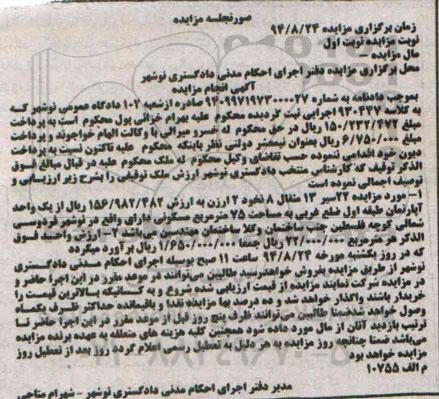 صورتجلسه مزایده
زمان برگزاری مزایده ۹۴/۸/۲۴
نوبت مزایده نوبت اول
مال مزایده –
محل برگزاری مزایده دفتر اجرای احکام مدنی دادگستری نوشهر
آگهی انجام مزایده
بموجب دادنامه به شماره ۹۴۰۹۹۷۱۹۷۳۰۰۰۰۲۷ صادره ازشعبه ۱۰۲ دادگاه عمومی نوشهر که
به کلاسه ۹۳۰۴۴۷ اجرایی ثبت گردیده محکوم علیه بهرام خزائی پول محکوم است به پرداخت
مبلغ ۱۵۰/۷۳۲/۴۷۲ ریال در حق محکوم له خسرو میرالی با وکالت الهام خواجوند و پرداخت
مبلغ ۶/۷۵۰/۰۰۰ ریال بعنوان نیمعشر دولتی نظر باینکه محکوم علیه تاکنون نسبت به پرداخت
دیون خود اقدامی ننموده حسب تقاضای وکیل محکوم له ملک محکوم علیه در قبال مبالغ فوق
الذکر توقیف که کارشناس منتخب دادگستری نوشهر ارزش ملک توقیفی را بشرح زیر ارزیابی و
توصیف اجمالی نموده است
۱– مورد مزایده ۲۲سیر ۱۳ مثقال ۸ نخود ۲ ارزن به ارزش ۱۵۶/۹۸۲/۴۸۲ ریال از یک واحد
آپارتمان طبقه اول ضلع غربی به مساحت ۷۵ مترمربع مسکونی دارای واقع در نوشهر فردوسی
شمالی کوچه فلسطین جنب ساختمان وکلا ساختمان مهندسین میباشد ۲– ارزش واحد فوق
الذکر هر مترمربع ۲۲/۰۰۰/۰۰۰ ریال جمعا ۱/۶۵۰/۰۰۰/۰۰۰ ریال برآورد میگردد
که در روز یکشنبه مورخه ۹۴/۸/۲۴ ساعت ۱۱ صبح بوسیله اجرای احکام مدنی دادگستری
نوشهر از طریق مزایده بفروش خواهدرسید طالبین می‌توانند در موعد مقرر در این اجرا حاضر و
در مزایده شرکت نمایند مزایده از قیمت ارزیابی شده شروع و به کسانیکه بالاترین قیمت را
خریدار باشند واگذار خواهد شد و ده درصد بها مزایده نقدا و باقیمانده حداکثر ظرف یکماه
وصول خواهد شدضمنا طالبین می‌توانند ظرف پنج روز قبل از موعد مقرر در این اجرا حاضر تا
ترتیب بازدید آنان از مال مورد داده شود همچنین کلیه هزینه های متعلقه به عهده برنده مزایده
می‌باشد ضمنا چنانچه روز مزایده به هر دلیل به تعطیل رسمی اعلام گردد روز بعد از تعطیل روز
مزایده خواهد بود
م الف ۱۰۷۵۵
مدیر دفتر اجرای احکام مدنی دادگستری نوشهر – شهرام متاجی